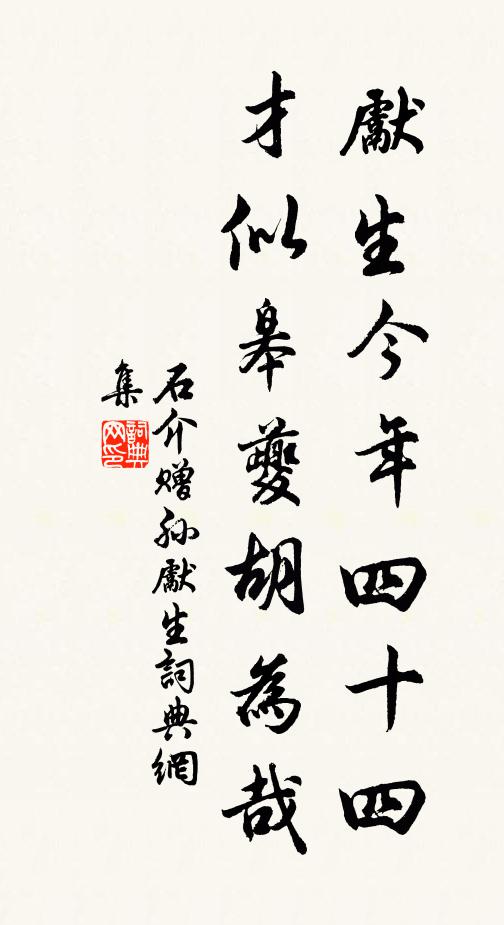 獻生今年四十四
才似皋夔胡為哉
石介贈孫獻生詞典網
集
詞典
网印